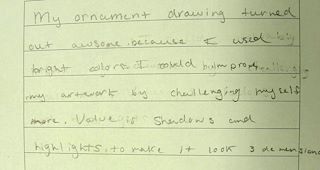 My ornament drawing turned
out awsome because I used
bright colors I could improve
my artwork by challenging my self
more. Value is Shadows and
highlights. to make it look 3 demensiona